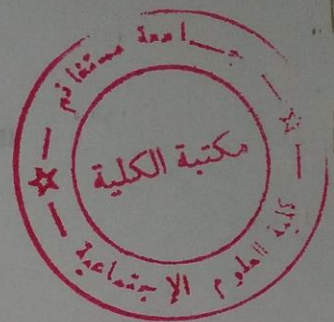 جامعة مستغانم
مكتبة الكلية
كلية العلوم الإجتماعية